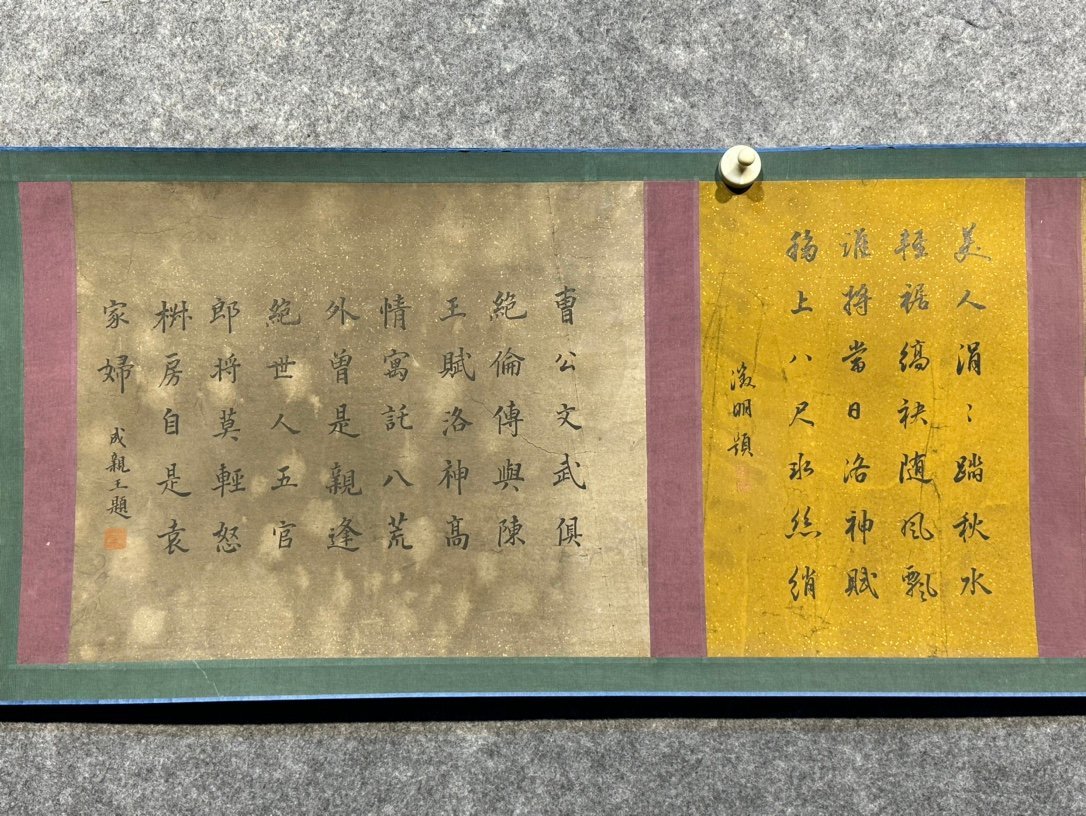 美人涓〻踏秋水
輕裾縞袂随風飄
誰將當日洛神賦
寫上八尺冰絲綃
徵明題
曹公文武俱
絕倫傳與陳
王賦洛神高
情寓託八荒
外曾是親逢
絕世人五官
郎将莫輕怒
椒房自是袁
家婦
成親王題